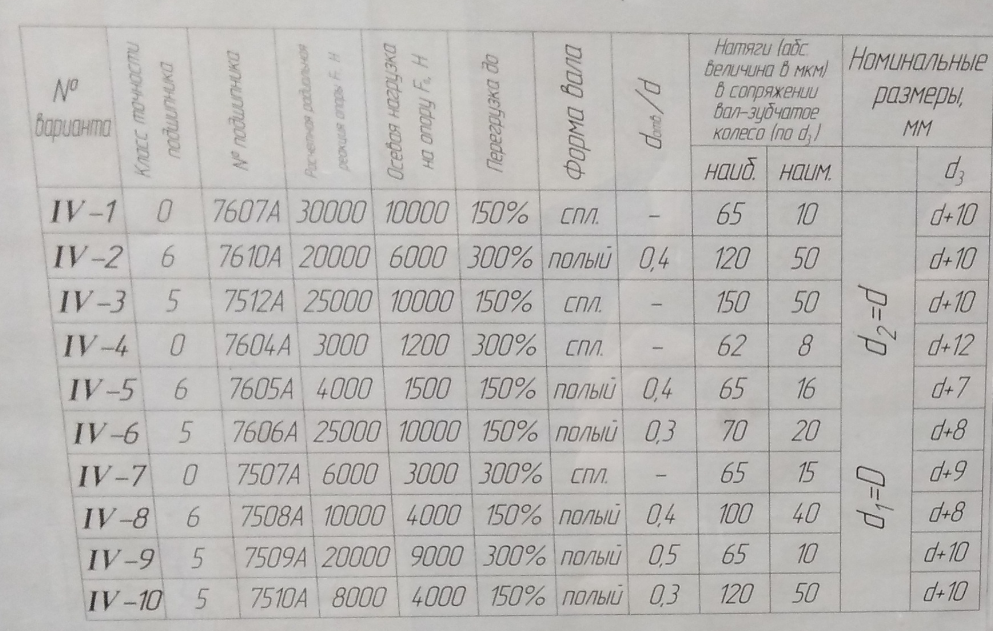 № варианта
Класс точности подшипника
№ подшипника
Расчетная радиальная реакция опоры Fᵣ Н
Осевая нагрузка на опору Fₐ, Н
Перегрузка до
Форма вала
dотв/d
Натяги (абс. величина в мкм) в сопряжении вал-зубчатое колесо (по d₃)
Номинальные размеры, мм
наиб. наим. d₃
IV-1 0 7607А 30000 10000 150% спл. – 65 10 d+10
IV-2 6 7610А 20000 6000 300% полый 0,4 120 50 d+10
IV-3 5 7512А 25000 10000 150% спл. – 150 50 d+10
IV-4 0 7604А 3000 1200 300% спл. – 62 8 d+12
IV-5 6 7605А 4000 1500 150% полый 0,4 65 16 d+7
IV-6 5 7606А 25000 10000 150% полый 0,3 70 20 d+8
IV-7 0 7507А 6000 3000 300% спл. – 65 15 d+9
IV-8 6 7508А 10000 4000 150% полый 0,4 100 40 d+8
IV-9 5 7509А 20000 9000 300% полый 0,5 65 10 d+10
IV-10 5 7510А 8000 4000 150% полый 0,3 120 50 d+10
d₂=d
d₁=D